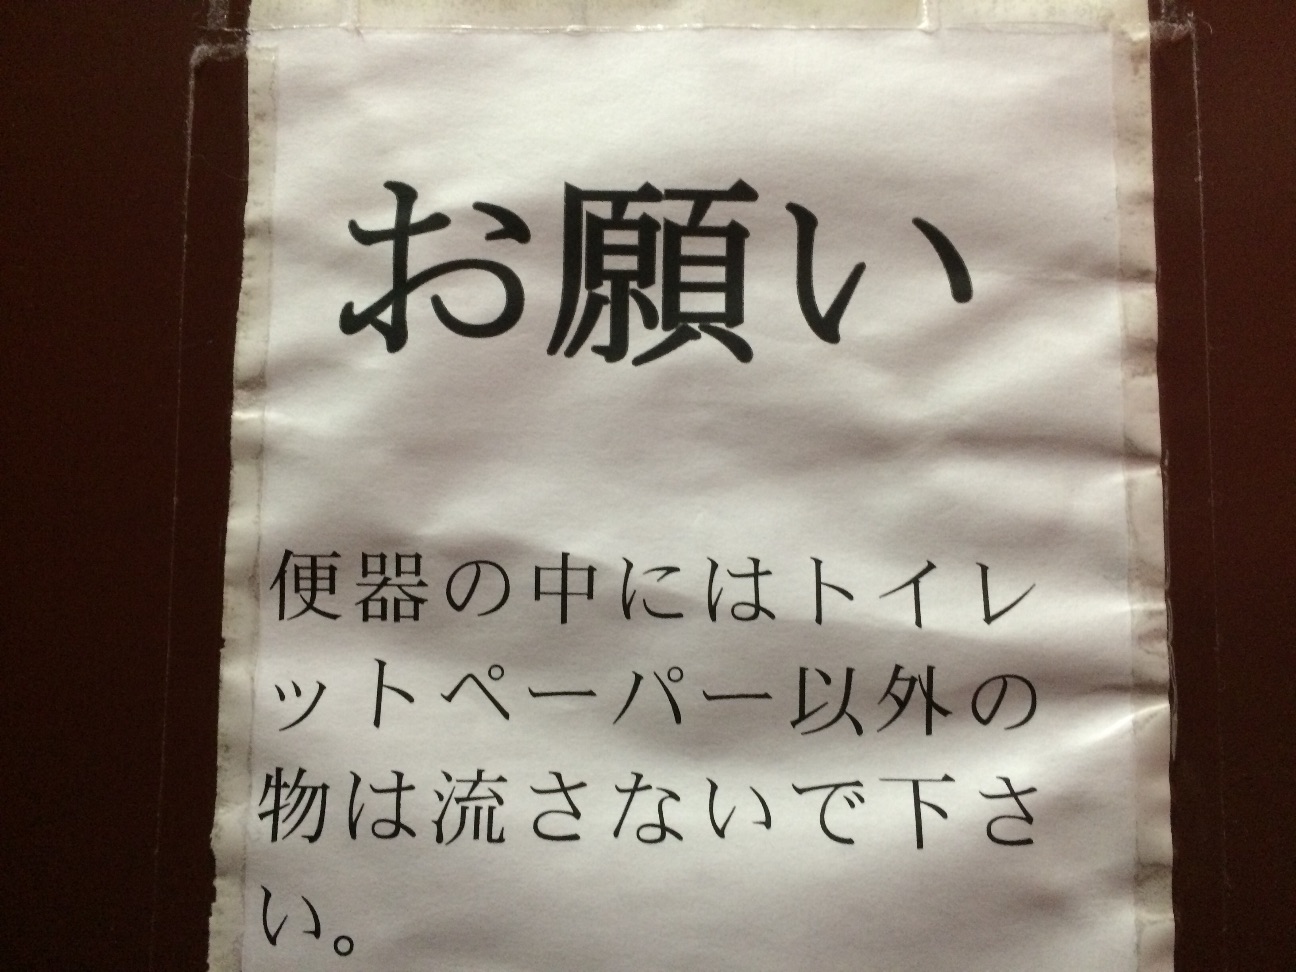 お願い
便器の中にはトイレ
ットペーパー以外の
物は流さないで下さ
い。